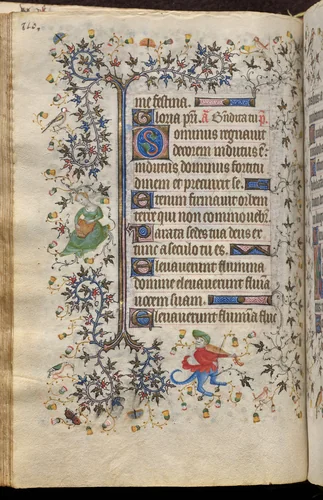 me festina.
Gloria pr̄i. A Induta tu p.
Dominus regnauit
decorem indutus ē:
indutus dominus fortitu
dinem et precinxit se.
Etenim firmauit orbem
terre qui non commouebr̄.
Parata sedes tua deus ex
tunc a seculo tu es.
Eleuauerunt flumina
domine eleuauerunt flūīa
uocem suam.
Eleuauerunt flumīa fluc